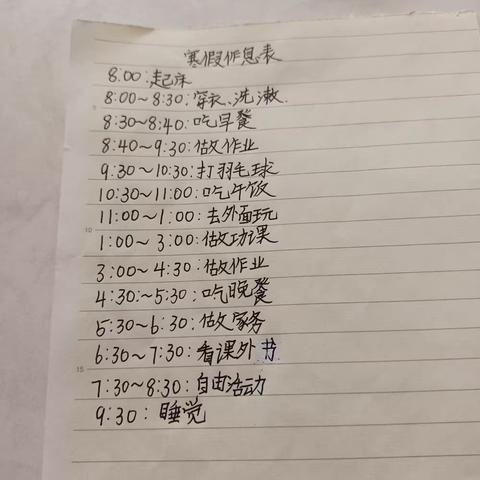 寒假作息表
8:00:起床
8:00~8:30:穿衣、洗漱.
8:30~8:40:吃早餐
8:40~9:30:做作业
9:30~10:30:打羽毛球
10:30~11:00:吃午饭
11:00~1:00:去外面玩
1:00~3:00:做功课
3:00~4:30:做作业
4:30:~5:30:吃晚餐
5:30~6:30:做家务
6:30~7:30:看课外书
7:30~8:30:自由活动
9:30:睡觉
5
10
15